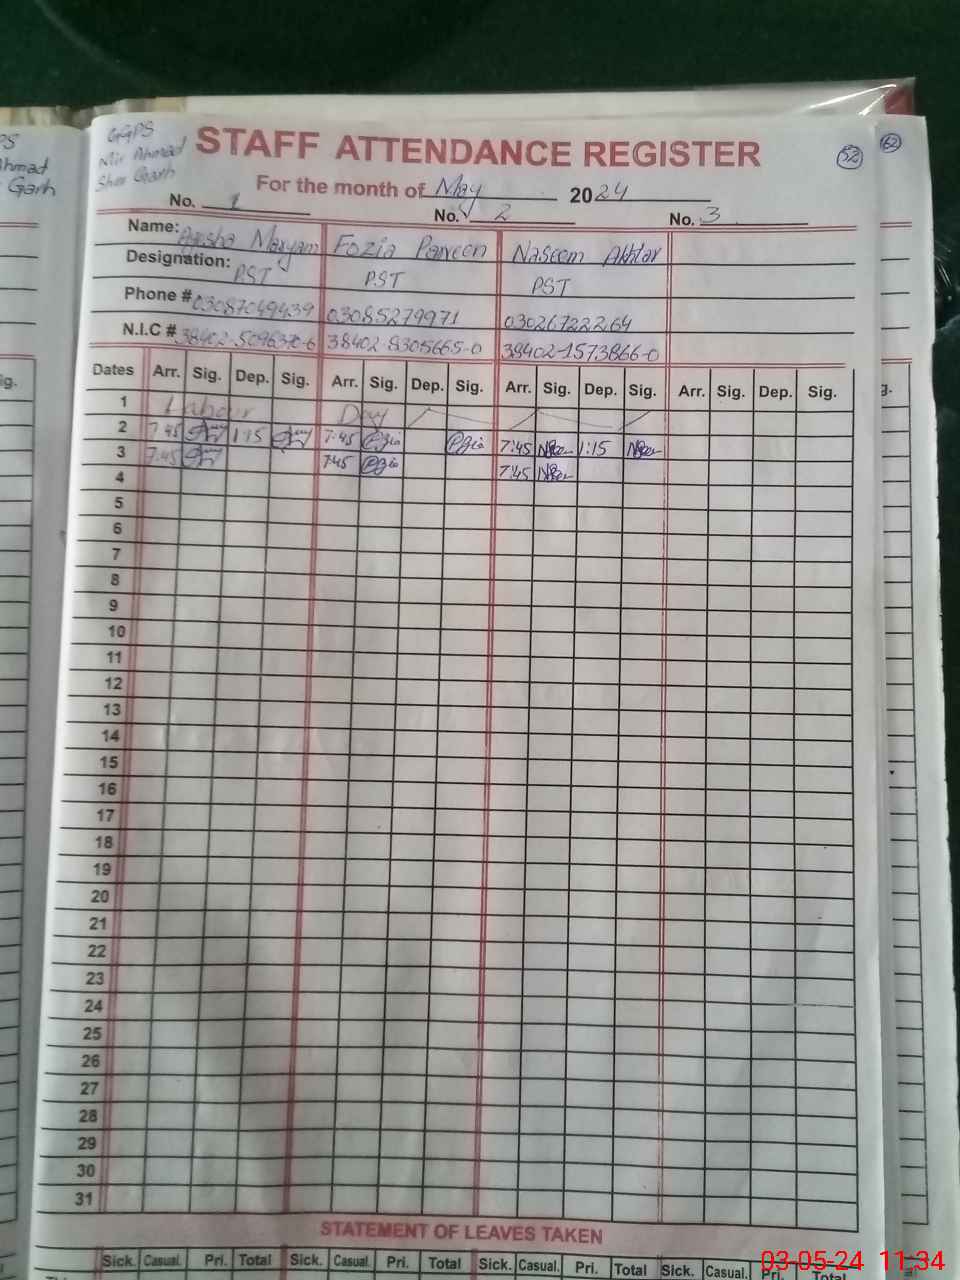 GGPS
Mir Ahmad
Sher Garh
STAFF ATTENDANCE REGISTER
52
62
For the month of May 2024
No. 1 No. 2 No. 3
Name: Ayesha Maryam Fozia Parveen Naseem Akhtar
Designation: PST PST PST
Phone # 03087049439 03085279971 03026722264
N.I.C # 38402-5096370-6 38402-8305665-0 38402-1573866-0
Dates Arr. Sig. Dep. Sig. Arr. Sig. Dep. Sig. Arr. Sig. Dep. Sig. Arr. Sig. Dep. Sig.
1 Labour Day
2 7:45 1:15 7:45 7:45 1:15
3 7:45 7:45 7:45
4
5
6
7
8
9
10
11
12
13
14
15
16
17
18
19
20
21
22
23
24
25
26
27
28
29
30
31
STATEMENT OF LEAVES TAKEN
Sick. Casual. Pri. Total Sick. Casual. Pri. Total Sick. Casual. Pri. Total Sick. Casual. Pri. Total
03-05-24 11:34